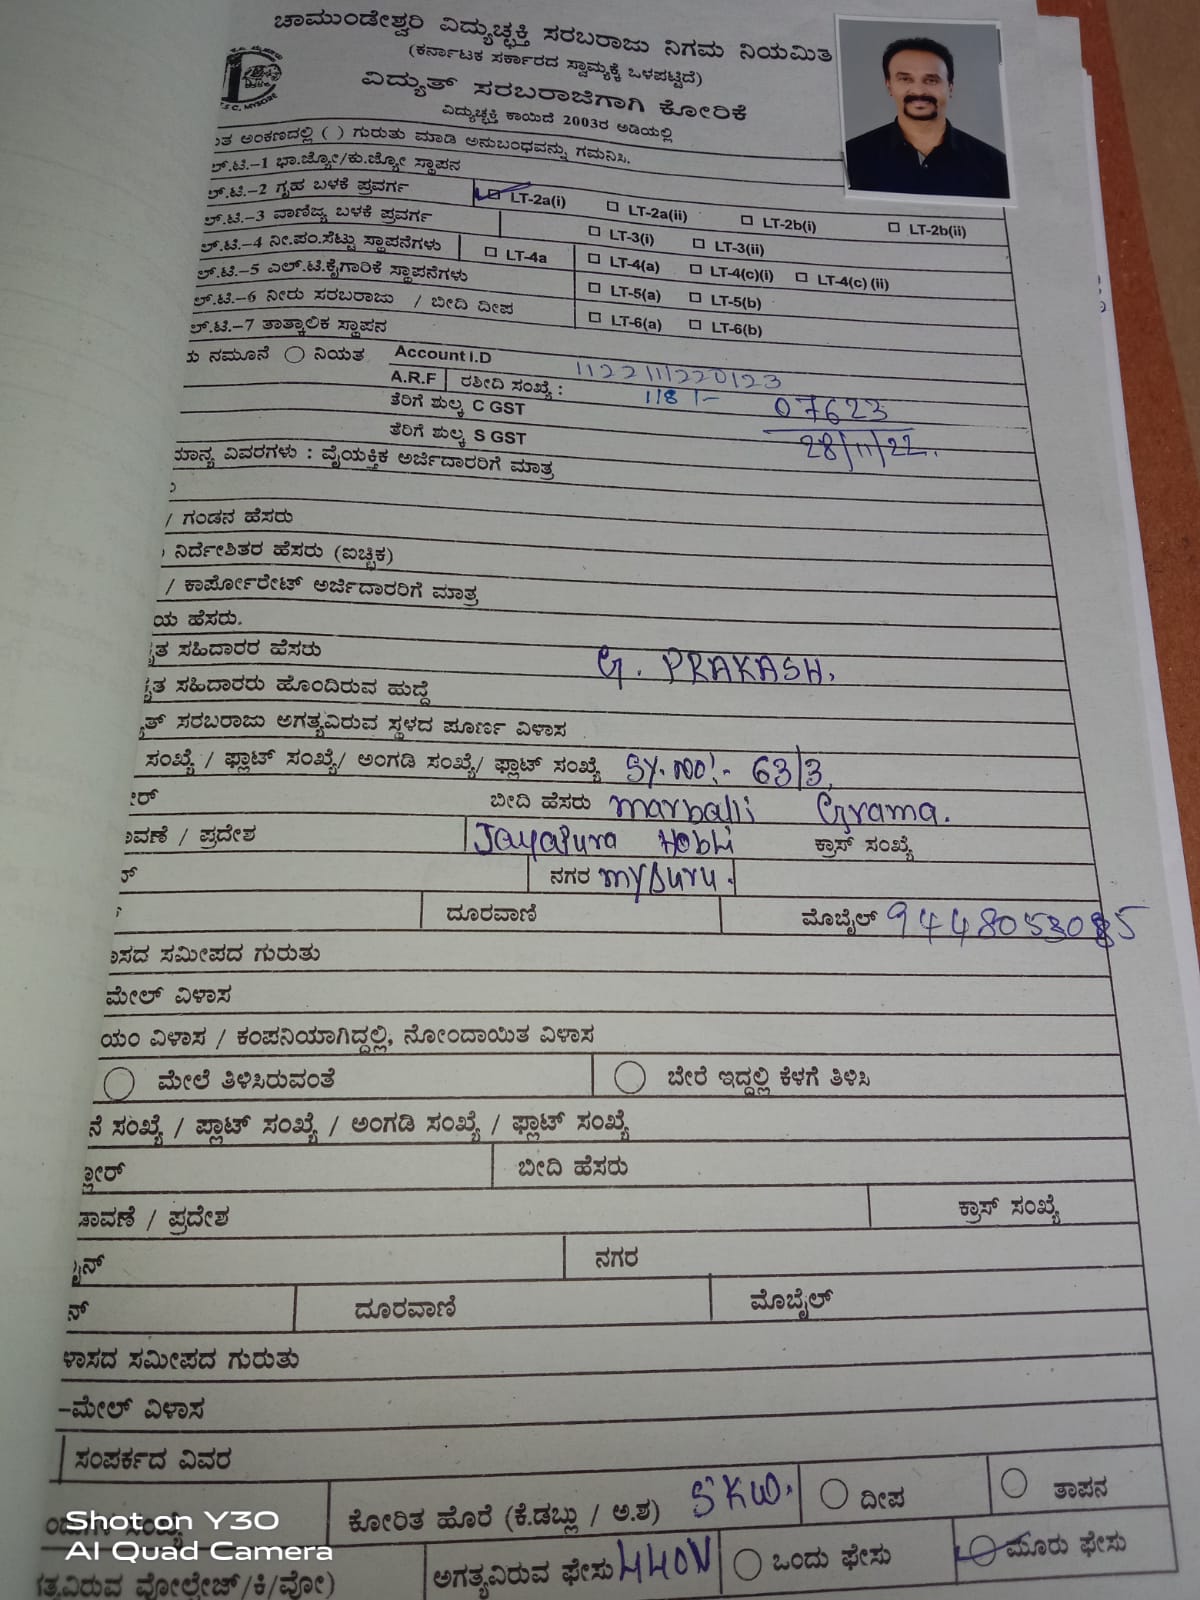 ಚಾಮುಂಡೇಶ್ವರಿ ವಿದ್ಯುಚ್ಛಕ್ತಿ ಸರಬರಾಜು ನಿಗಮ ನಿಯಮಿತ
(ಕರ್ನಾಟಕ ಸರ್ಕಾರದ ಸ್ವಾಮ್ಯಕ್ಕೆ ಒಳಪಟ್ಟಿದೆ)
ವಿದ್ಯುತ್ ಸರಬರಾಜಿಗಾಗಿ ಕೋರಿಕೆ
ವಿದ್ಯುಚ್ಛಕ್ತಿ ಕಾಯಿದೆ 2003ರ ಅಡಿಯಲ್ಲಿ
ತ ಅಂಕಣದಲ್ಲಿ ( ) ಗುರುತು ಮಾಡಿ ಅನುಬಂಧವನ್ನು ಗಮನಿಸಿ.
ಲ್.ಟಿ.-1 ಭಾ.ಜ್ಯೋ/ಕು.ಜ್ಯೋ ಸ್ಥಾಪನ
ಲ್.ಟಿ.-2 ಗೃಹ ಬಳಕೆ ಪ್ರವರ್ಗ LT-2a(i) LT-2a(ii) LT-2b(i) LT-2b(ii)
ಲ್.ಟಿ.-3 ವಾಣಿಜ್ಯ ಬಳಕೆ ಪ್ರವರ್ಗ LT-3(i) LT-3(ii)
ಲ್.ಟಿ.-4 ನೀ.ಪಂ.ಸೆಟ್ಟು ಸ್ಥಾಪನೆಗಳು LT-4a LT-4(a) LT-4(c)(i) LT-4(c) (ii)
ಲ್.ಟಿ.-5 ಎಲ್.ಟಿ.ಕೈಗಾರಿಕೆ ಸ್ಥಾಪನೆಗಳು LT-5(a) LT-5(b)
ಲ್.ಟಿ.-6 ನೀರು ಸರಬರಾಜು / ಬೀದಿ ದೀಪ LT-6(a) LT-6(b)
ಲ್.ಟಿ.-7 ತಾತ್ಕಾಲಿಕ ಸ್ಥಾಪನ
ನಮೂನೆ ನಿಯತ Account I.D 1122111220123
A.R.F ರಶೀದಿ ಸಂಖ್ಯೆ : 118/- 07623
ತೆರಿಗೆ ಶುಲ್ಕ C GST 28/11/22.
ತೆರಿಗೆ ಶುಲ್ಕ S GST
ಮಾನ್ಯ ವಿವರಗಳು : ವೈಯಕ್ತಿಕ ಅರ್ಜಿದಾರರಿಗೆ ಮಾತ್ರ
/ ಗಂಡನ ಹೆಸರು
ನಿರ್ದೇಶಿತರ ಹೆಸರು (ಐಚ್ಛಿಕ)
/ ಕಾರ್ಪೋರೇಟ್ ಅರ್ಜಿದಾರರಿಗೆ ಮಾತ್ರ
ಯ ಹೆಸರು.
ೃತ ಸಹಿದಾರರ ಹೆಸರು G. PRAKASH.
ೃತ ಸಹಿದಾರರು ಹೊಂದಿರುವ ಹುದ್ದೆ
ತ್ ಸರಬರಾಜು ಅಗತ್ಯವಿರುವ ಸ್ಥಳದ ಪೂರ್ಣ ವಿಳಾಸ
ಸಂಖ್ಯೆ / ಫ್ಲಾಟ್ ಸಂಖ್ಯೆ/ ಅಂಗಡಿ ಸಂಖ್ಯೆ/ ಫ್ಲಾಟ್ ಸಂಖ್ಯೆ SY.NO:- 63/3,
ೀರ್ ಬೀದಿ ಹೆಸರು marballi Grama.
ಾವಣೆ / ಪ್ರದೇಶ Jayapura Hobli ಕ್ರಾಸ್ ಸಂಖ್ಯೆ
ನಗರ mysuru.
ದೂರವಾಣಿ ಮೊಬೈಲ್ 9448053085
ಾಸದ ಸಮೀಪದ ಗುರುತು
ಮೇಲ್ ವಿಳಾಸ
ಯಂ ವಿಳಾಸ / ಕಂಪನಿಯಾಗಿದ್ದಲ್ಲಿ, ನೋಂದಾಯಿತ ವಿಳಾಸ
ಮೇಲೆ ತಿಳಿಸಿರುವಂತೆ ಬೇರೆ ಇದ್ದಲ್ಲಿ ಕೆಳಗೆ ತಿಳಿಸಿ
ನೆ ಸಂಖ್ಯೆ / ಪ್ಲಾಟ್ ಸಂಖ್ಯೆ / ಅಂಗಡಿ ಸಂಖ್ಯೆ / ಫ್ಲಾಟ್ ಸಂಖ್ಯೆ
್ಲೋರ್ ಬೀದಿ ಹೆಸರು
ಡಾವಣೆ / ಪ್ರದೇಶ ಕ್ರಾಸ್ ಸಂಖ್ಯೆ
ೈನ್ ನಗರ
ನ್ ದೂರವಾಣಿ ಮೊಬೈಲ್
ಳಾಸದ ಸಮೀಪದ ಗುರುತು
-ಮೇಲ್ ವಿಳಾಸ
ಸಂಪರ್ಕದ ವಿವರ
ಕೋರಿತ ಹೊರೆ (ಕೆ.ಡಬ್ಲು / ಅ.ಶ) 5KW. ದೀಪ ತಾಪನ
ಗತ್ಯವಿರುವ ವೋಲ್ಟೇಜ್/ಕಿ/ವೋ) ಅಗತ್ಯವಿರುವ ಫೇಸು 440V ಒಂದು ಫೇಸು ಮೂರು ಫೇಸು
Shot on Y30
AI Quad Camera